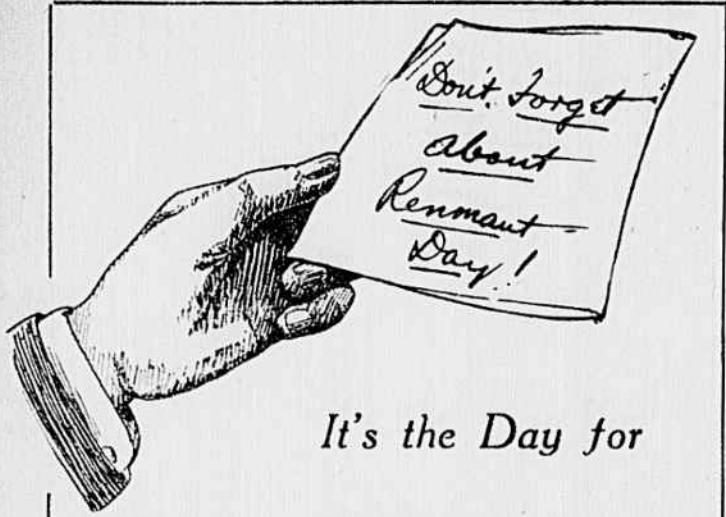 Don't Forget
about
Renmant
Day!
It's the Day for